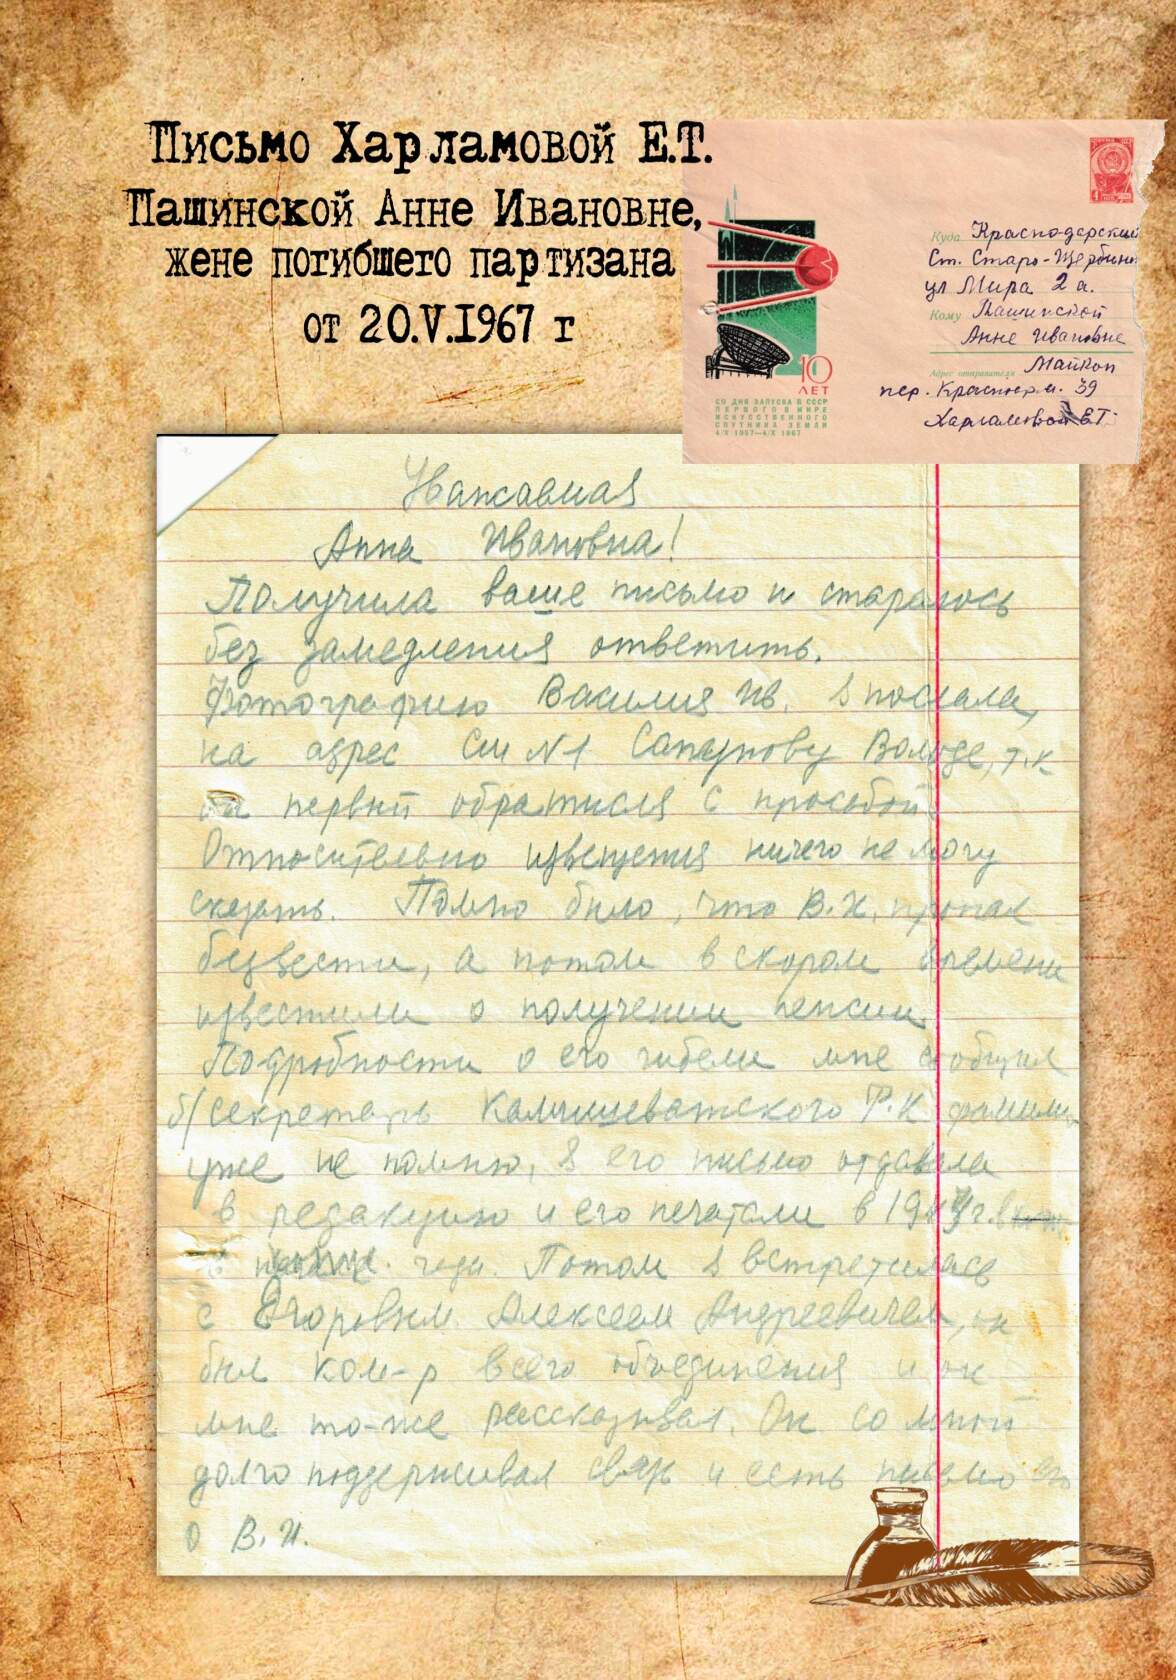 Письмо Харламовой Е.Т.
Пашинской Анне Ивановне,
жене погибшего партизана
от 20.V.1967 г
Куда Краснодарский
Ст. Старо-Щербино
ул Мира 2 а.
Кому Пашинской
Анне Ивановне
Адрес отправителя Майкоп
пер. Красноарм. 39
Харламовой Е.Т.
10
ЛЕТ
СО ДНЯ ЗАПУСКА В СССР
ПЕРВОГО В МИРЕ
ИСКУССТВЕННОГО
СПУТНИКА ЗЕМЛИ
4/X 1957—4/X 1967
Уважавмая
Анна Ивановна!
Получила ваше письмо и стараюсь
без замедления ответить.
Фотографию Василия Ив. я послала,
на адрес Сш N1 Сапунову Володе, т.к
он первый обратился с просьбой.
Относительно извещения ничего не могу
сказать. Помню было, что В.И. пропал
безвести, а потом в скором времени
известили о получении пенсии.
Подробности о его гибели мне сообщил
б/секретарь Калишеватского Р.К фамилию
уже не помню, я его письмо отдавала
в редакцию и его печатали в 194 г.
года. Потом я встретилась
с Егоровым Алексеем Андреевичем, он
был ком-р всего объединения и он
мне то-же рассказывал. Он со мной
долго поддерживал связь и есть письмо его
о В.И.